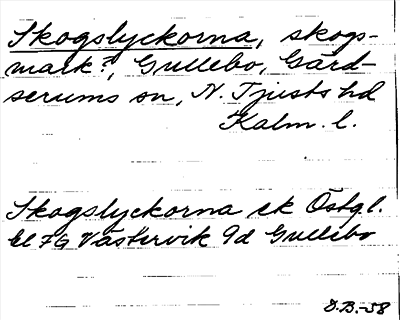 Skogslyckorna, skogs-
mark?, Gullebo, Gärd-
serums sn, N. Tjusts hd
Kalm. l.
Skogslyckorna ek Östgl.
bl 7G Västervik 9d Gullebo
D.B.-58